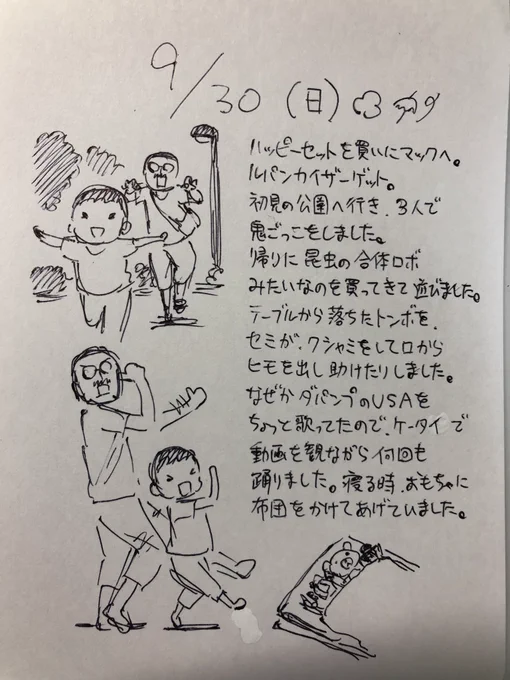 9/30(日)
ハッピーセットを買いにマックへ。
ルパンカイザーゲット。
初見の公園へ行き、3人で
鬼ごっこをしました。
帰りに昆虫の合体ロボ
みたいなのを買ってきて遊びました。
テーブルから落ちたトンボを、
セミが、クシャミをして口から
ヒモを出し助けたりしました。
なぜかダパンプのUSAを
ちょっと歌ってたので、ケータイで
動画を観ながら何回も
踊りました。寝る時、おもちゃに
布団をかけてあげていました。